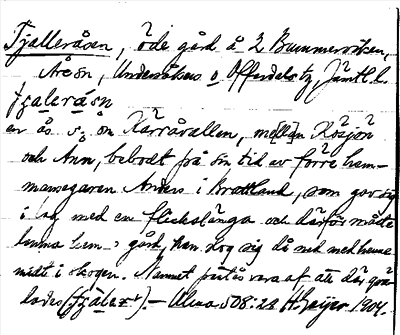 Fjalleråsen, öde gård å Z Bummeråsen,
Åsn, Undersåkers o Offerdals tg, Jämtl. l.
fjaleråsn
en ås s. ôn Kärråvallen, mellan Kösjön
och Ånn, bebodt på sin tid av förre hem-
mansegaren Anders i Brattland, som gav sig
i lag med en flickslänga och därför måste
lemna hem o gård, han tog sig då ned med henne
midt i skogen. Namnet påstås vara af att där gva-
lades (fjàlər). – Alma 508:28 H. Geijer 1904.